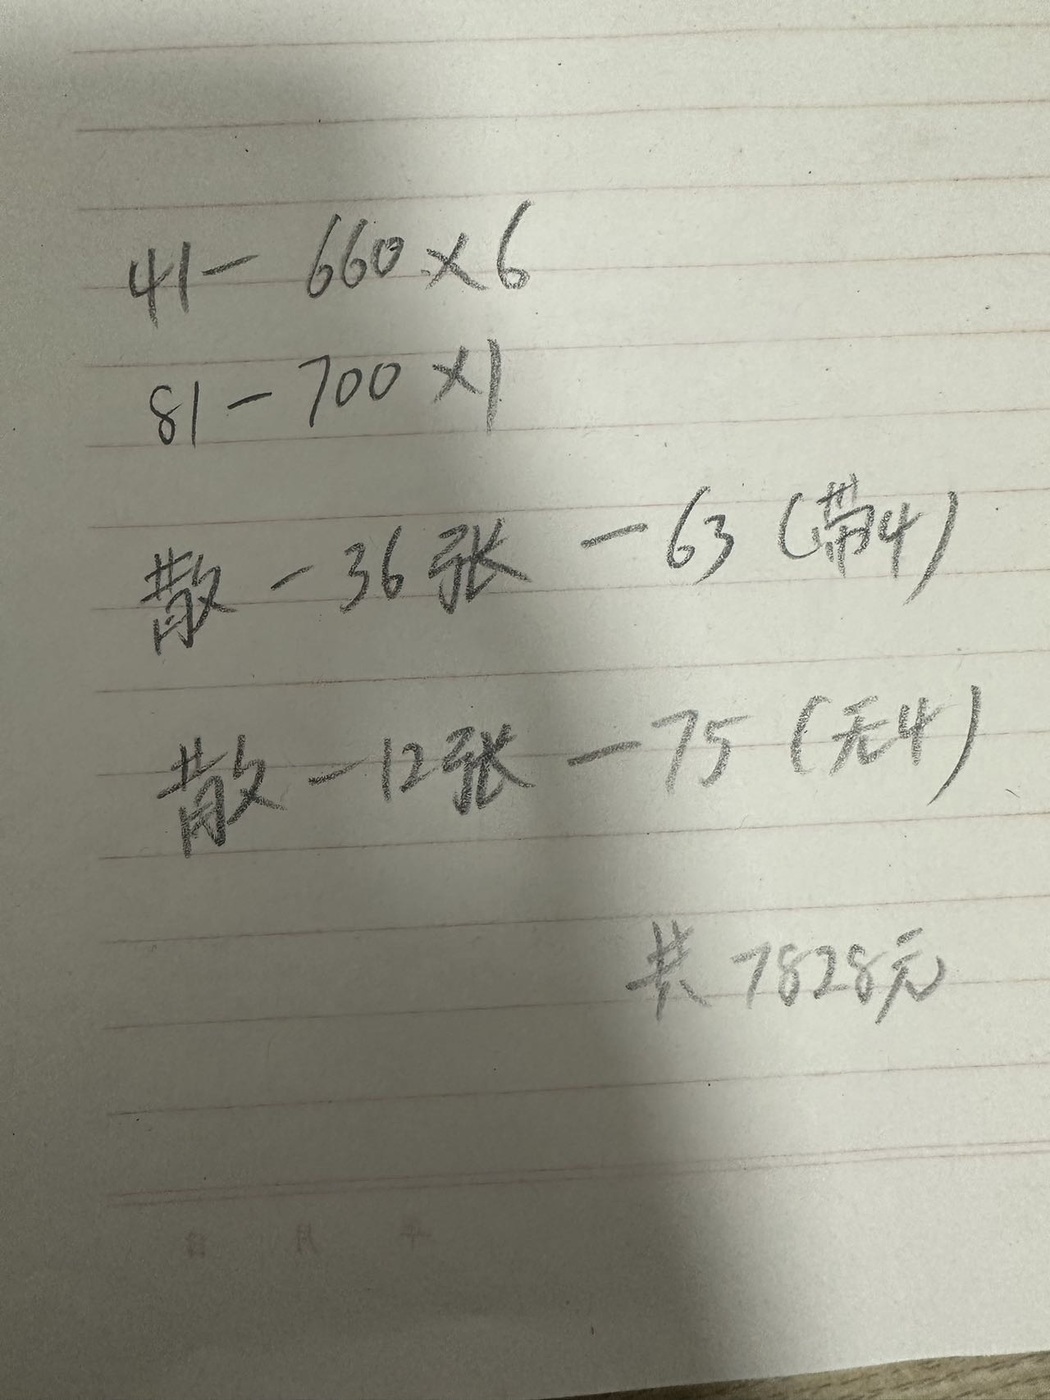 41- 660×6
81-700×1
散-36张 -63(带4)
散-12张 -75(无4)
共7828元